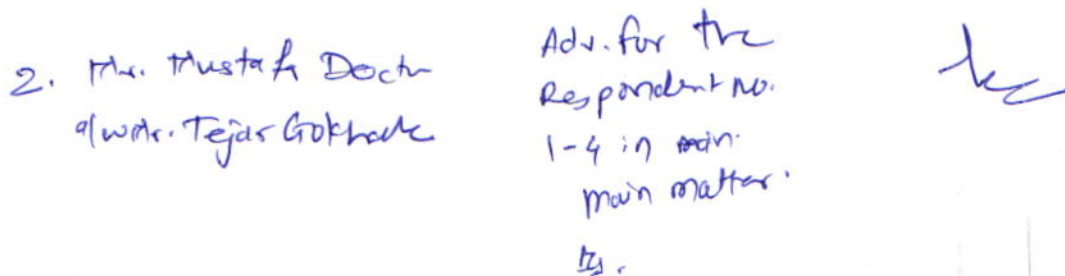 2. Mr. Mustafa Doctor
a/w Mr. Tejas Gokhale
Adv. for the
Respondent No.
1-4 in
main matter.